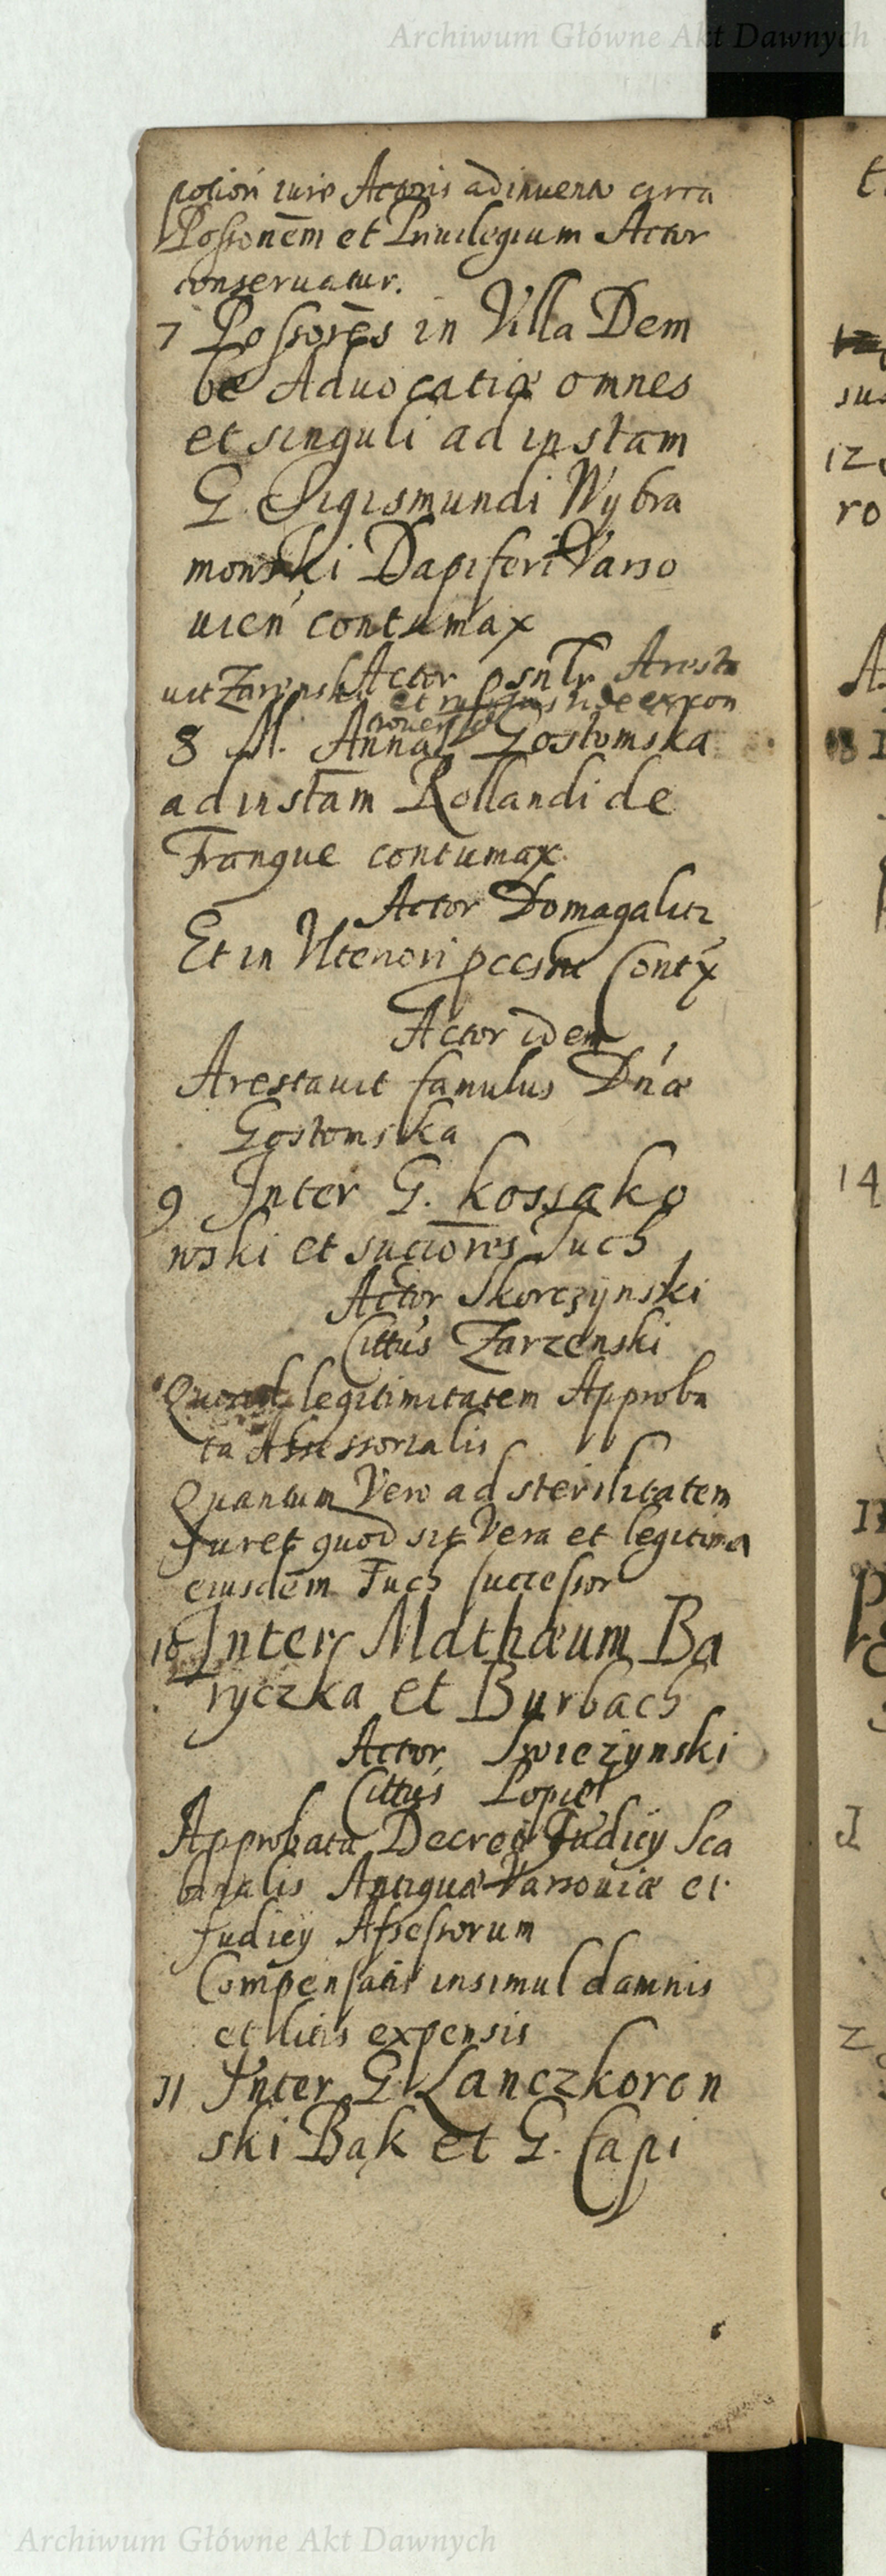 Archiwum Główne Akt Dawnych
potiori iure Actoris adinvento circa
Possonem et Privilegium Actor
conservatur.
7 Possores in Villa Dem
be Advocatiæ omnes
et singuli ad instam
G. Sigismundi Wybra
mowski Dapiferi Varso
vien contumax
Actor psntr Aresta
vit Zarenski et
8 M. Anna Gostomska
ad instam Rollandi de
Franque contumax
Actor Domagalicz
Et in Ulteriori pccssu Contx
Actor idem
Arestavit famulus Dnæ
Gostomska
9 Inter G. Kossako
wski et succores Juch
Actor Skorczynski
Cittus Zarzenski
Quoad legitimitatem Approba
ta Assessorialis
Quantum Vero ad sterilitatem
Juret quod sit Vera et legitima
eiusdem Juch successor
10 Inter Mathæum Ba
ryczka et Burbach
Actor Swiezynski
Cittus Lopiel
Approbata Decreo Judicy Sca
binalis Antiquæ Varsoviæ et
Judicy Assessorum
Compensatis insimul damnis
et litis expensis
11 Inter G. Lanczkoron
ski Bąk et G. Capi
14
Archiwum Główne Akt Dawnych